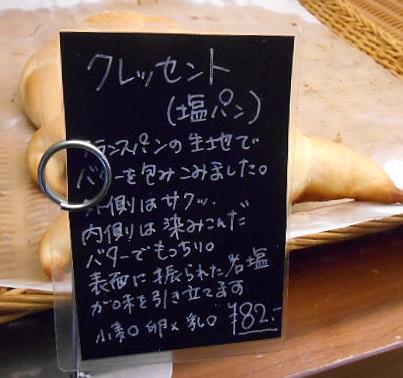 クレッセント
(塩パン)
フランスパンの生地で
バターを包みこみました。
外側はサクッ..
内側は染みこんだ
バターでもっちり。
表面に振られた岩塩
が味を引き立てます
小麦○ 卵× 乳○ ¥82.-